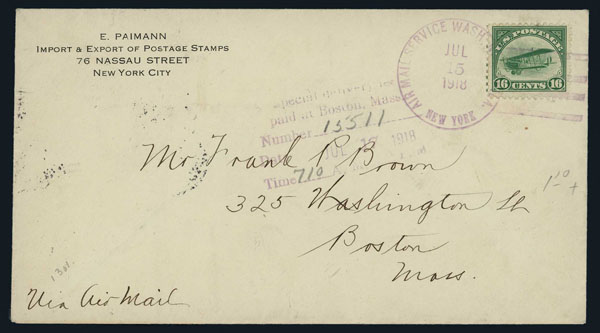 E. PAIMANN
IMPORT & EXPORT OF POSTAGE STAMPS
76 NASSAU STREET
NEW YORK CITY
AIR MAIL SERVICE WASH.
NEW YORK
JUL
15
1918
U.S. POSTAGE
16 CENTS 16
Special delivery fee
paid at Boston, Mass.
Number 15511
JUL 15 1918
Time 710
Mr Frank P. Brown
325 Washington St
Boston
Mass.
Via Air Mail